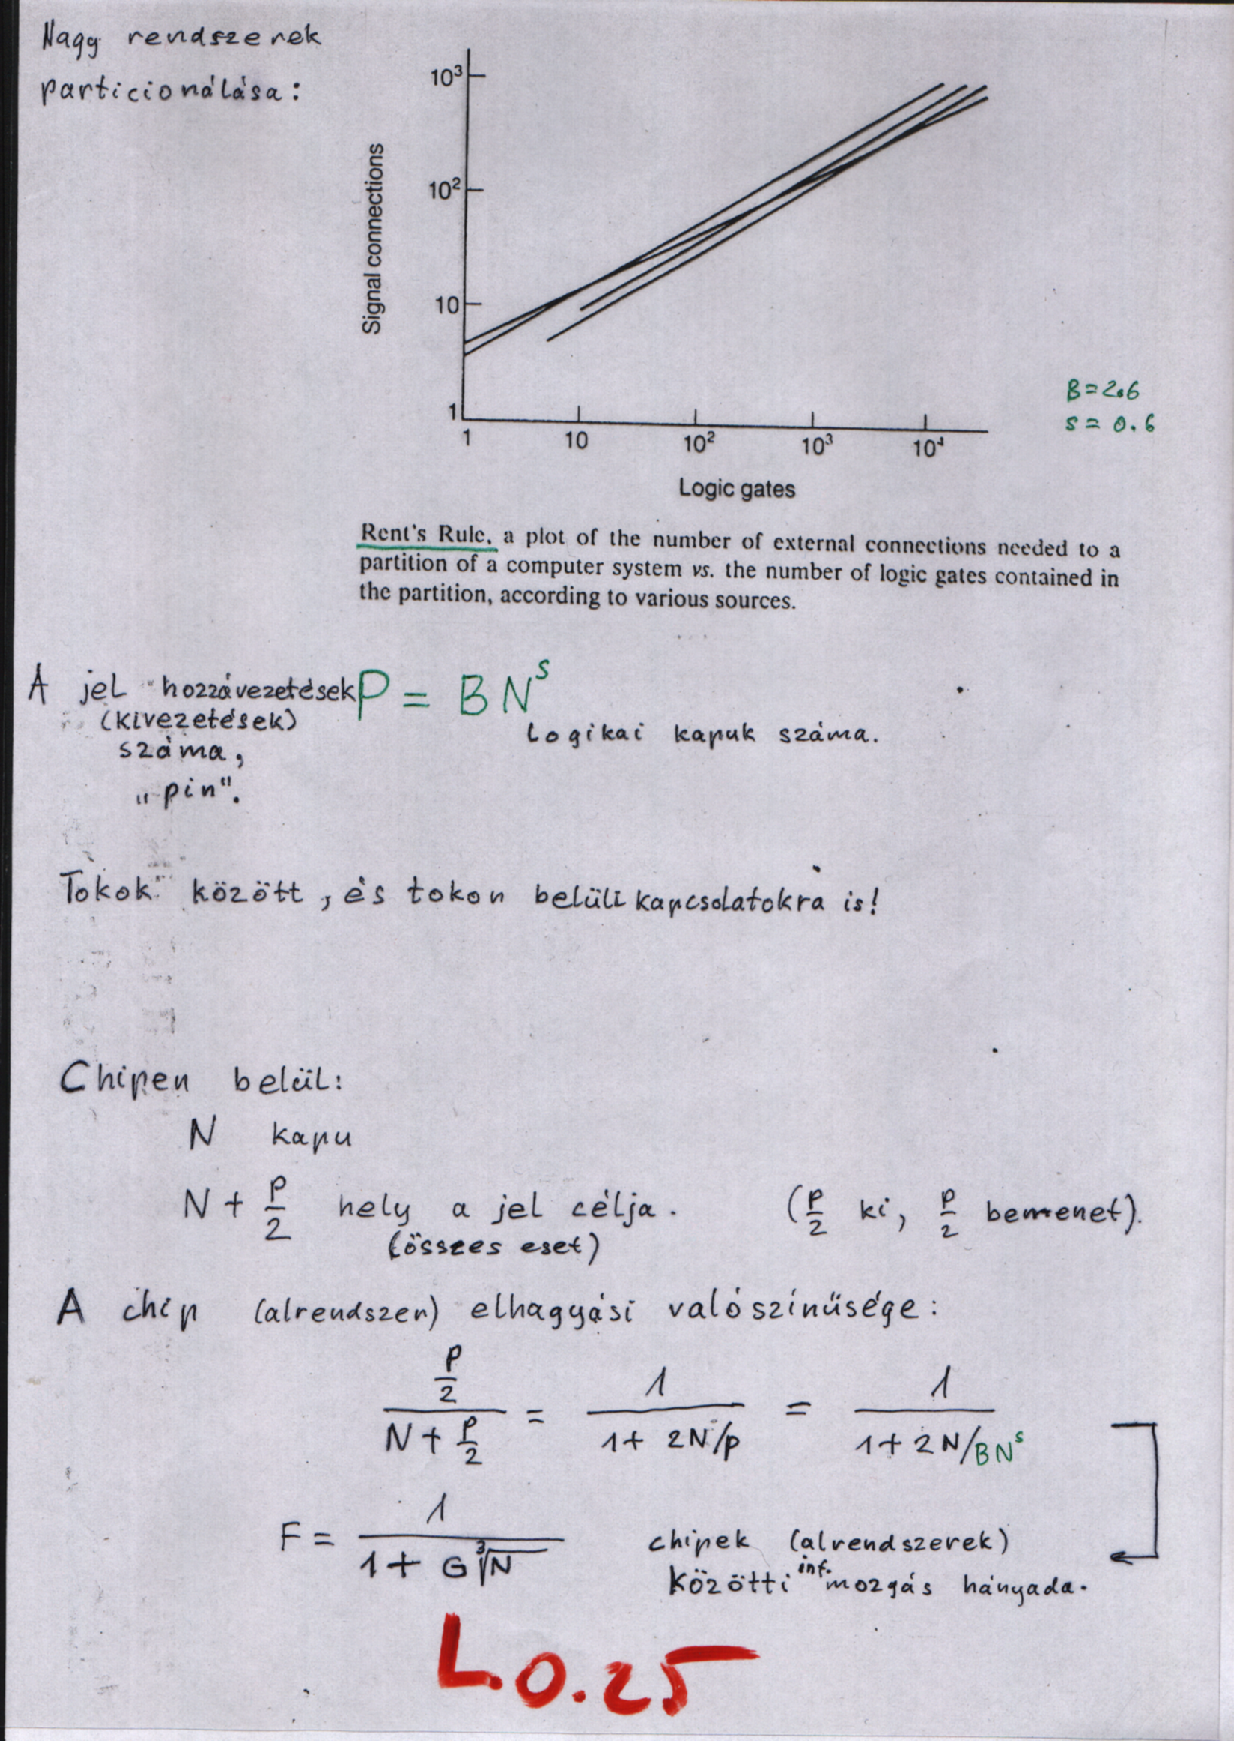 Nagy rendszerek
particionálása:
10³
10²
10
1
Signal connections
1 10 10² 10³ 10⁴
Logic gates
B=2.6
s=0.6
Rent's Rule, a plot of the number of external connections needed to a
partition of a computer system vs. the number of logic gates contained in
the partition, according to various sources.
A jel hozzávezetések P = BN^s
(kivezetések)
száma,
„pin".
Logikai kapuk száma.
Tokok között, és tokon belüli kapcsolatokra is!
Chipen belül:
N kapu
N + P/2 hely a jel célja. (P/2 ki, P/2 bemenet).
(összes eset)
A chip (alrendszer) elhagyási valószínűsége:
(P/2)/(N + P/2) = 1/(1 + 2N/P) = 1/(1 + 2N/BN^s)
F = 1/(1 + G∛N) chipek (alrendszerek)
közötti inf. mozgás hányada.
L.0.25